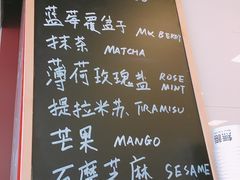 蓝莓覆盆子 MIX BERRY
抹茶 MATCHA
薄荷玫瑰盐 ROSE MINT
提拉米苏 TIRAMISU
芒果 MANGO
石磨芝麻 SESAME